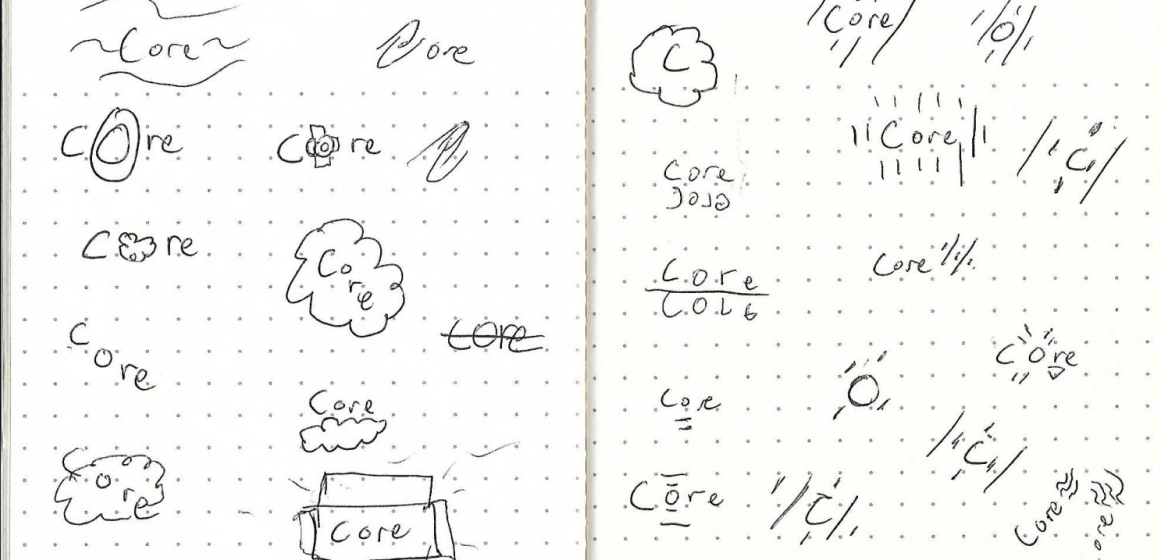 ~Core~
ore
Core
Core
Core
Core
Core
Core
Core
Core
Core
Core
C
Core
Core
Core
Core
Core
Core
O
Core
C
Core
Core
O
C
C
Core
ore